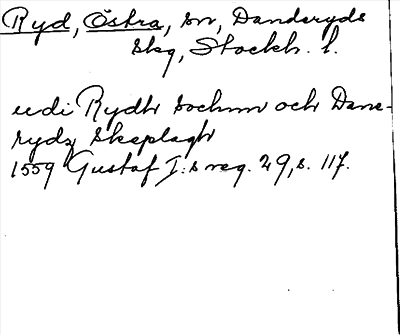 Ryd, Östra, sn, Danderyds
Skg, Stockh. l.
udi Rydh sochnn och Dane-
rydz skeplagh
1559 Gustaf I:s reg. 29, s. 117.